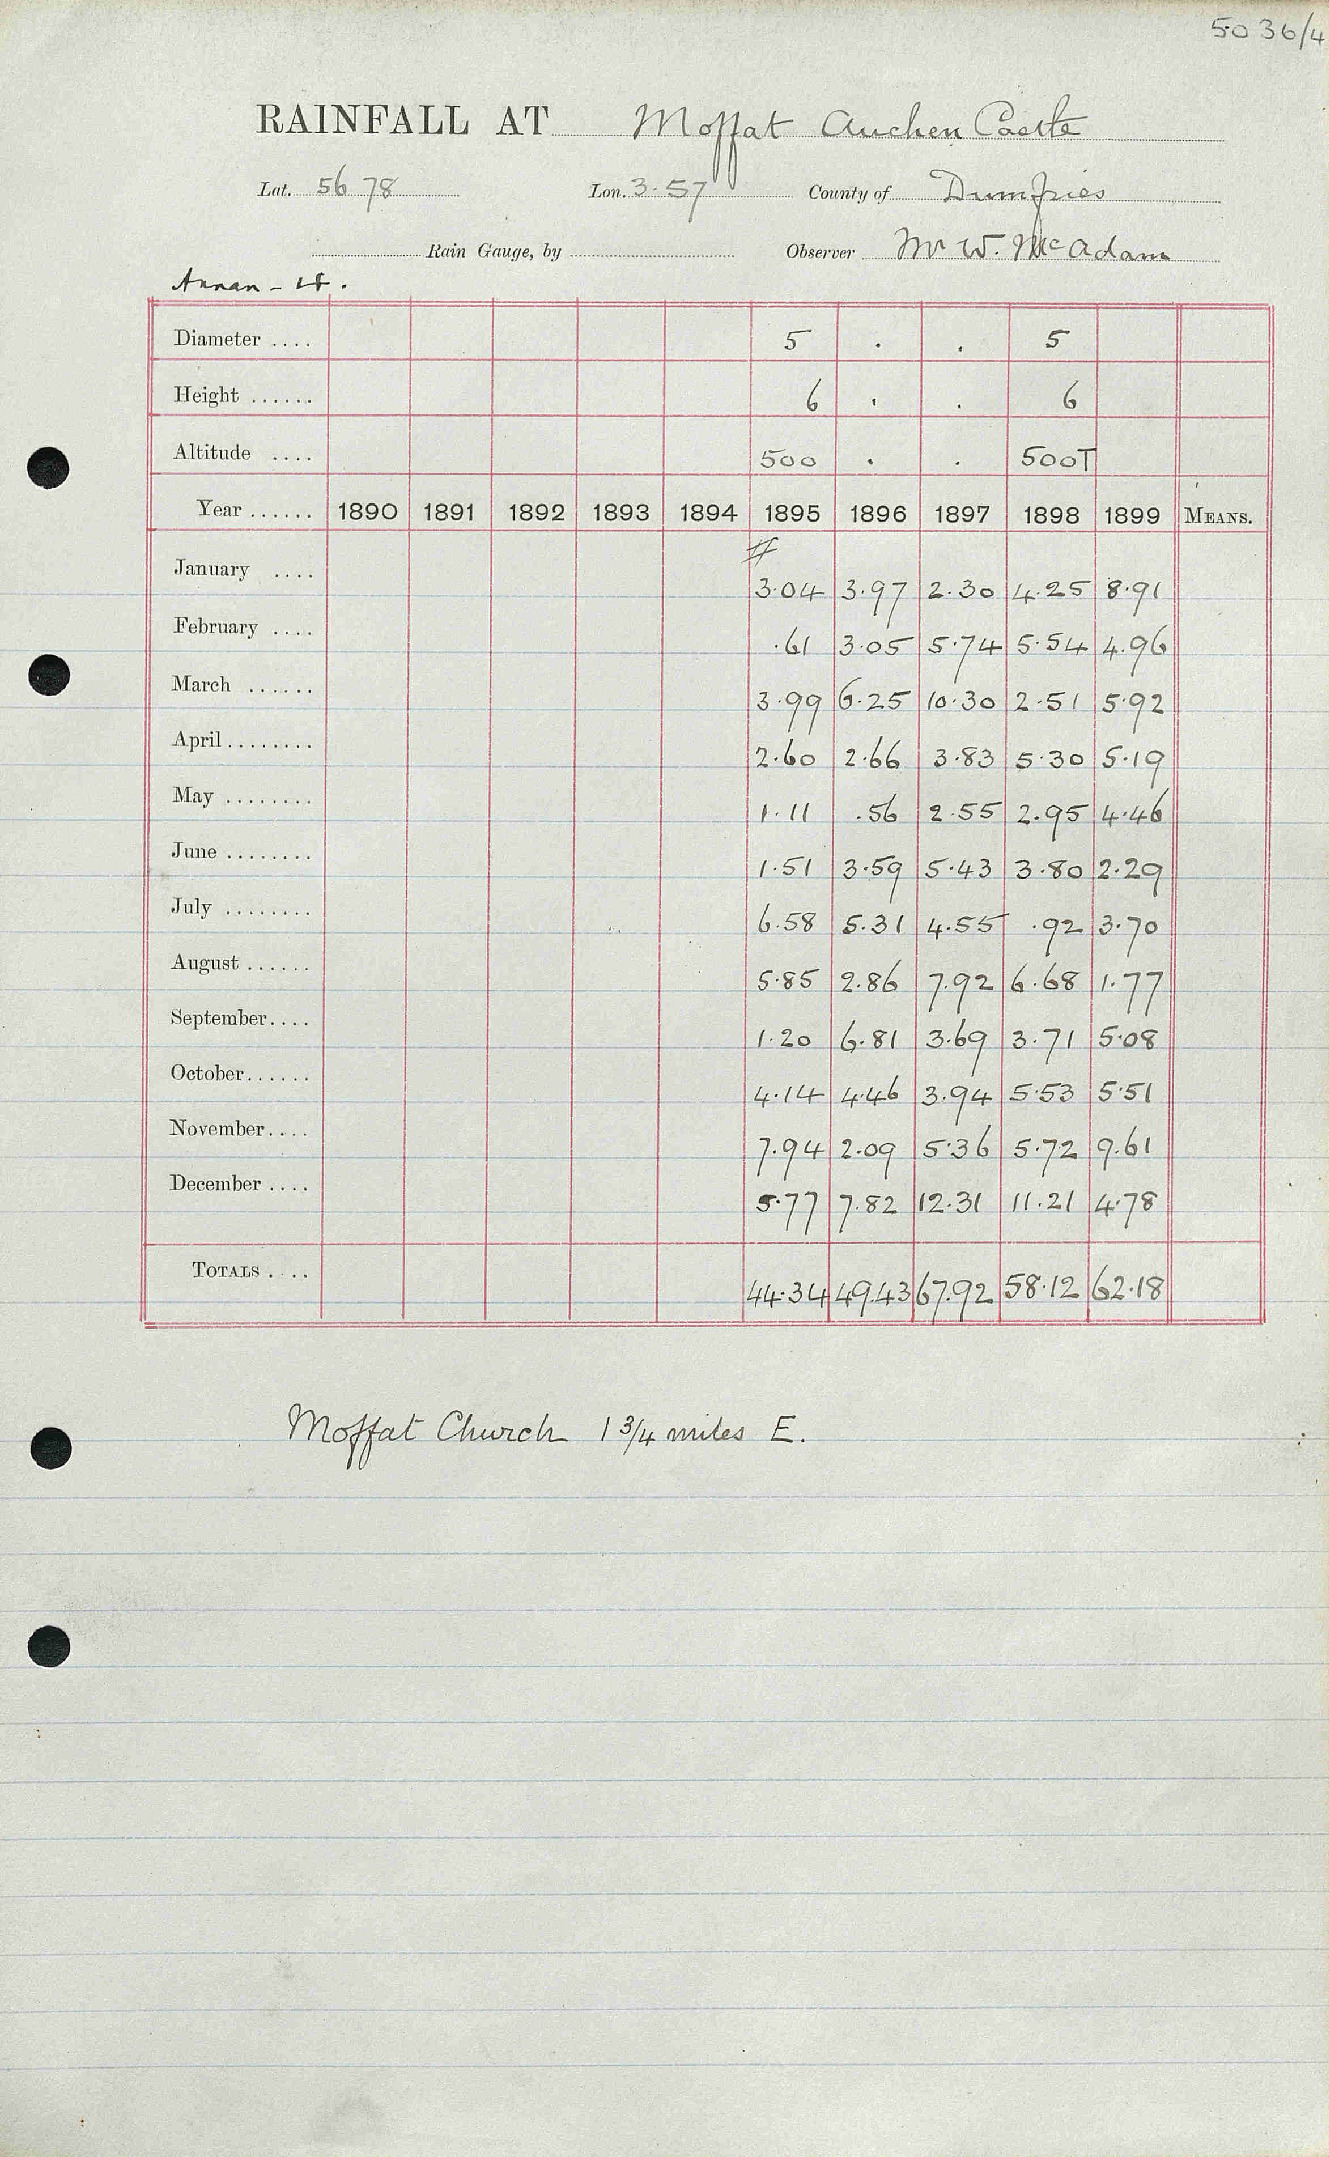 5036/4
RAINFALL AT Moffat Auchen Castle
Lat. 56 78 Lon. 3.57 County of Dumfries
Rain Gauge, by Observer Mr W. McAdam
Annan -
Diameter .... 5 . . 5
Height ...... 6 . . 6
Altitude .... 500 . . 500T
Year ...... 1890 1891 1892 1893 1894 1895 1896 1897 1898 1899 MEANS.
#
January .... 3.04 3.97 2.30 4.25 8.91
February .... .61 3.05 5.74 5.54 4.96
March ...... 3.99 6.25 10.30 2.51 5.92
April ........ 2.60 2.66 3.83 5.30 5.19
May ........ 1.11 .56 2.55 2.95 4.46
June ........ 1.51 3.59 5.43 3.80 2.29
July ........ 6.58 5.31 4.55 .92 3.70
August ...... 5.85 2.86 7.92 6.68 1.77
September.... 1.20 6.81 3.69 3.71 5.08
October...... 4.14 4.46 3.94 5.53 5.51
November.... 7.94 2.09 5.36 5.72 9.61
December .... 5.77 7.82 12.31 11.21 4.78
TOTALS .... 44.34 49.43 67.92 58.12 62.18
Moffat Church 1 3/4 miles E.